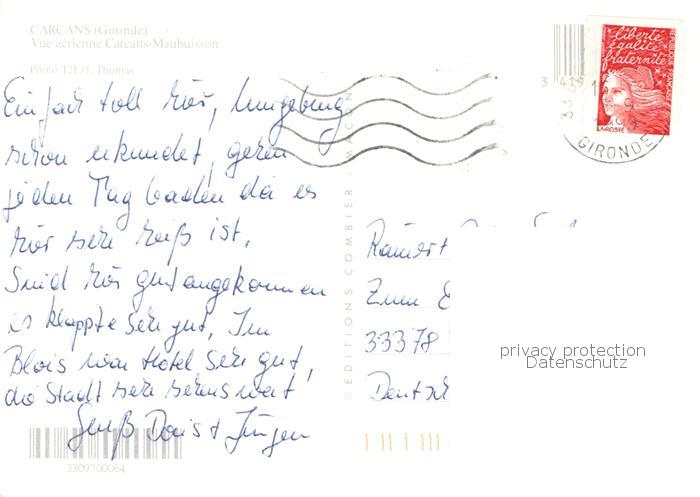 CARCANS (Gironde)
Vue aérienne Carcans-Maubuisson
Photo T2L/J. Thomas
Einfach toll hier, Umgebung
schon erkundet, gehen
jeden Tag baden da es
hier sehr heiß ist.
Sind hier gut angekommen
es klappte sehr gut, Im
Blois war Hotel sehr gut,
die Stadt sehr sehenswert
Gruß Doris + Jürgen
3309700084
© EDITIONS COMBIER MACON
liberté
égalité
fraternité
REPUBLIQUE FRANÇAISE
LA POSTE
GIRONDE
Rainer +
Zum
33378
Deutsch
privacy protection
Datenschutz